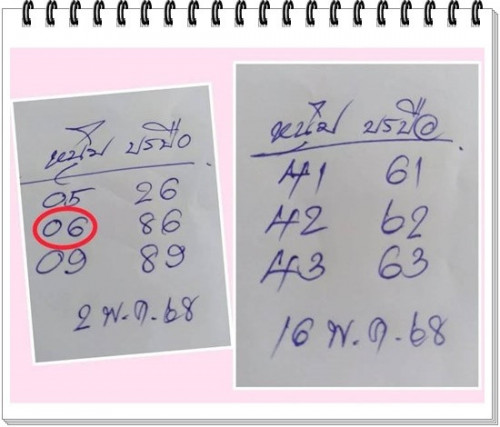 หนุ่ม บรบือ
05 26
06 86
09 89
2 พ.ค.68
หนุ่ม บรบือ
41 61
42 62
43 63
16 พ.ค.68